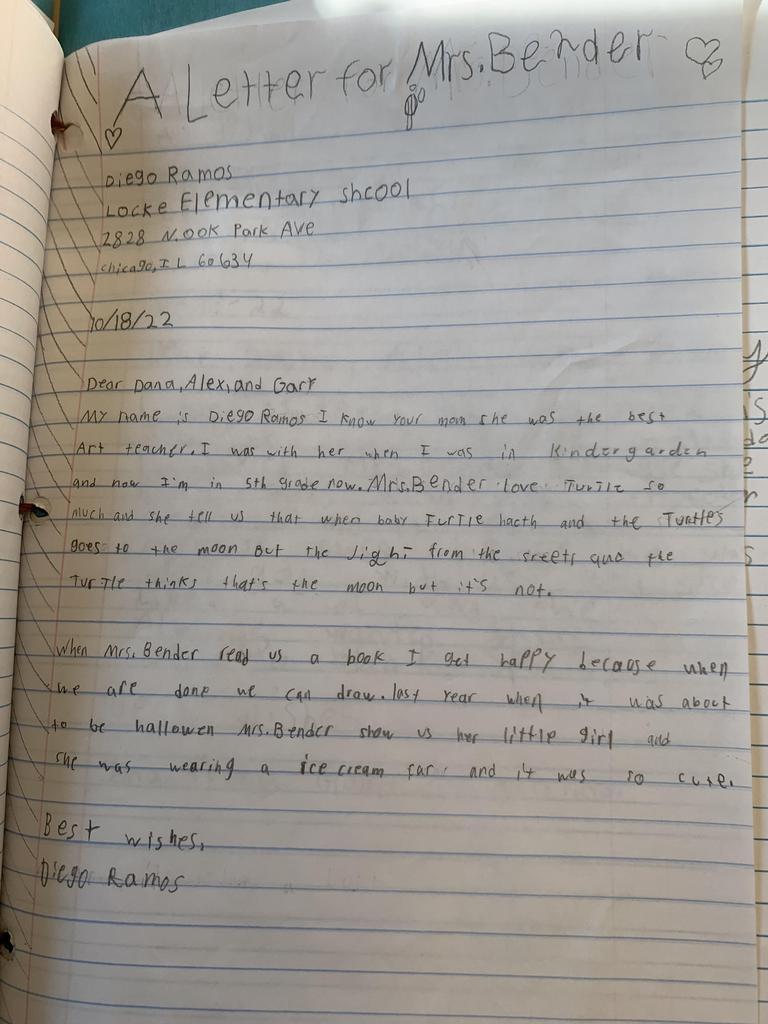 A Letter for Mrs. Bender
Diego Ramos
Locke Elementary shcool
2828 N. Oak Park Ave
chicago, IL 60634
10/18/22
Dear Dana, Alex, and Gary
My name is Diego Ramos I know your mom she was the best
Art teacher. I was with her when I was in Kindergarden
and now I'm in 5th grade now. Mrs. Bender love Turtle so
much and she tell us that when baby Turtle hacth and the Turtles
goes to the moon But the light from the sreets and the
Turtle thinks that's the moon but it's not.
When Mrs. Bender read us a book I get happy because when
we are done we can draw. last year when it was about
to be hallowen Mrs. Bender show us her little girl and
she was wearing a ice cream car and it was so cute.
Best wishes,
Diego Ramos